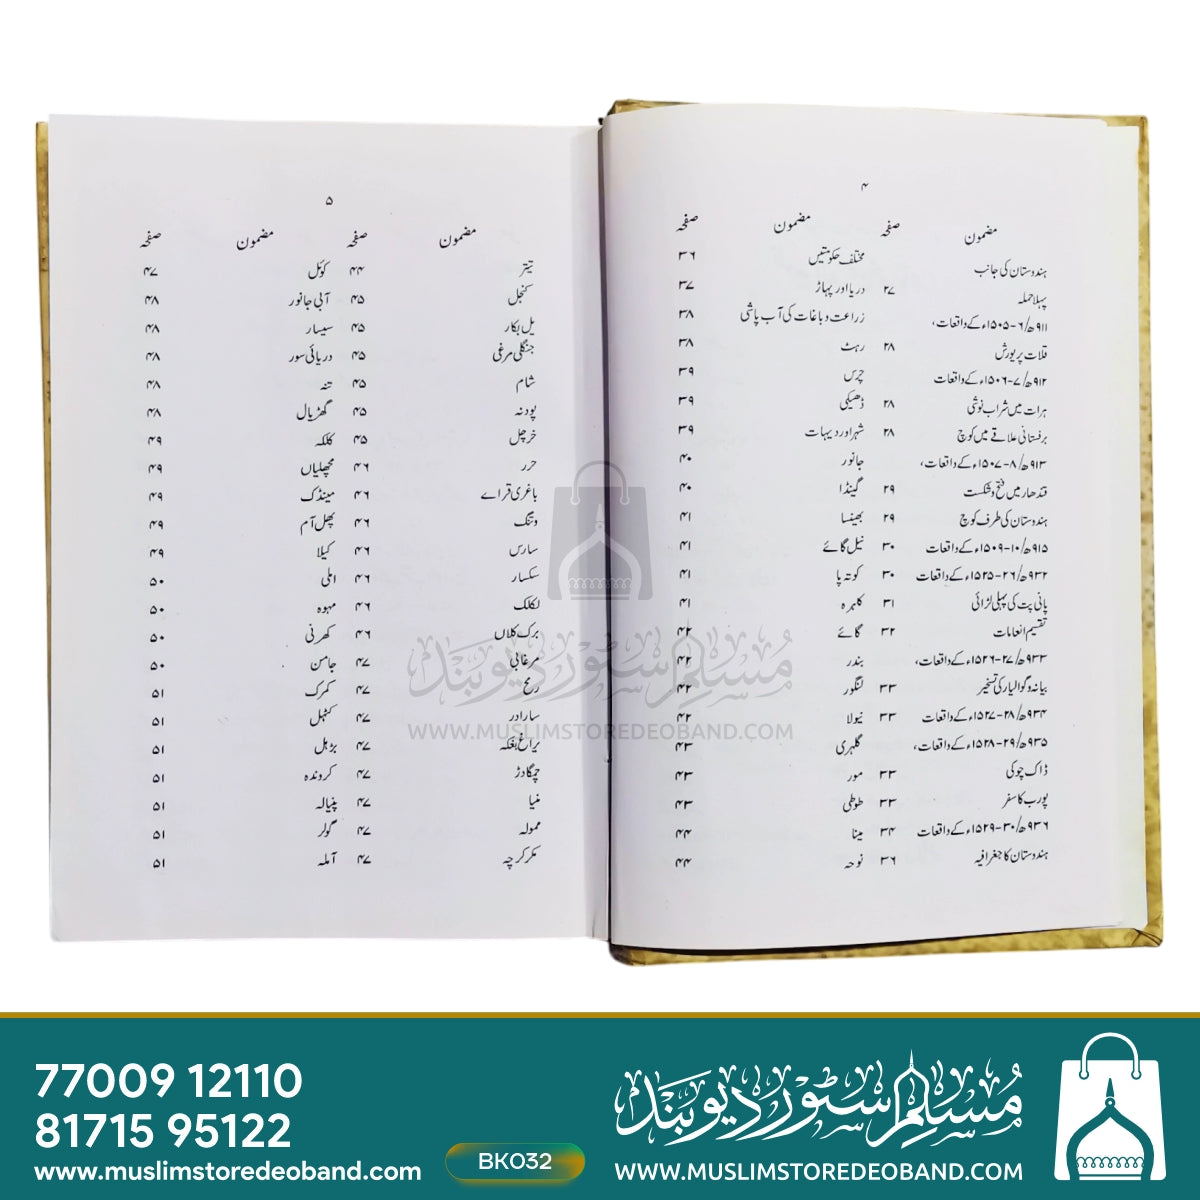 ۴
مضمون صفحہ مضمون صفحہ
ہندوستان کی جانب مختلف حکومتیں ۳۶
پہلا حملہ ۲۷ دریا اور پہاڑ ۳۷
۹۱۱ھ/۶-۱۵۰۵ء کے واقعات، زراعت و باغات کی آب پاشی ۳۸
قلات پر یورش ۲۸ رہٹ ۳۸
۹۱۲ھ/۷-۱۵۰۶ء کے واقعات چرس ۳۹
ہرات میں شراب نوشی ۲۸ ڈھیکی ۳۹
برفستانی علاقے میں کوچ ۲۸ شہر اور دیہات ۳۹
۹۱۳ھ/۸-۱۵۰۷ء کے واقعات، جانور ۴۰
قندھار میں فتح و شکست ۲۹ گینڈا ۴۰
ہندوستان کی طرف کوچ ۲۹ بھینسا ۴۱
۹۱۵ھ/۱۰-۱۵۰۹ء کے واقعات ۳۰ نیل گائے ۴۱
۹۳۲ھ/۲۶-۱۵۲۵ء کے واقعات ۳۰ کوتہ پا ۴۱
پانی پت کی پہلی لڑائی ۳۱ کلہرہ ۴۱
تقسیم انعامات ۳۲ گائے ۴۲
۹۳۳ھ/۲۷-۱۵۲۶ء کے واقعات، بندر ۴۲
بیانہ و گوالیار کی تسخیر ۳۳ لنگور ۴۲
۹۳۴ھ/۲۸-۱۵۲۷ء کے واقعات ۳۳ نیولا ۴۲
۹۳۵ھ/۲۹-۱۵۲۸ء کے واقعات، گلہری ۴۳
ڈاک چوکی ۳۳ مور ۴۳
پورب کا سفر ۳۳ طوطی ۴۳
۹۳۶ھ/۳۰-۱۵۲۹ء کے واقعات ۳۴ مینا ۴۴
ہندوستان کا جغرافیہ ۳۶ نوحہ ۴۴
۵
مضمون صفحہ مضمون صفحہ
تیتر ۴۴ کوئل ۴۷
کنجل ۴۵ آبی جانور ۴۸
یل بکار ۴۵ سیسار ۴۸
جنگلی مرغی ۴۵ دریائی سور ۴۸
شام ۴۵ تنہ ۴۸
پودنہ ۴۵ گھڑیال ۴۸
خرچل ۴۵ کلکہ ۴۹
حرر ۴۶ مچھلیاں ۴۹
باغری قرائے ۴۶ مینڈک ۴۹
ونگ ۴۶ پھل آم ۴۹
سارس ۴۶ کیلا ۴۹
سکسار ۴۶ املی ۵۰
لکلک ۴۶ مہوہ ۵۰
برک کلاں ۴۶ کھرنی ۵۰
مرغابی ۴۷ جامن ۵۰
رمح ۴۷ کمرک ۵۱
سارادر ۴۷ کٹہل ۵۱
یراغ بغکہ ۴۷ بڑہل ۵۱
چمگادڑ ۴۷ کروندہ ۵۱
منیا ۴۷ پنیالہ ۵۱
ممولہ ۴۷ گولر ۵۱
کرکرچہ ۴۷ آملہ ۵۱
مسلم سٹور دیوبند
WWW.MUSLIMSTOREDEOBAND.COM
77009 12110
81715 95122
www.muslimstoredeoband.com
BK032
مسلم سٹور دیوبند
WWW.MUSLIMSTOREDEOBAND.COM